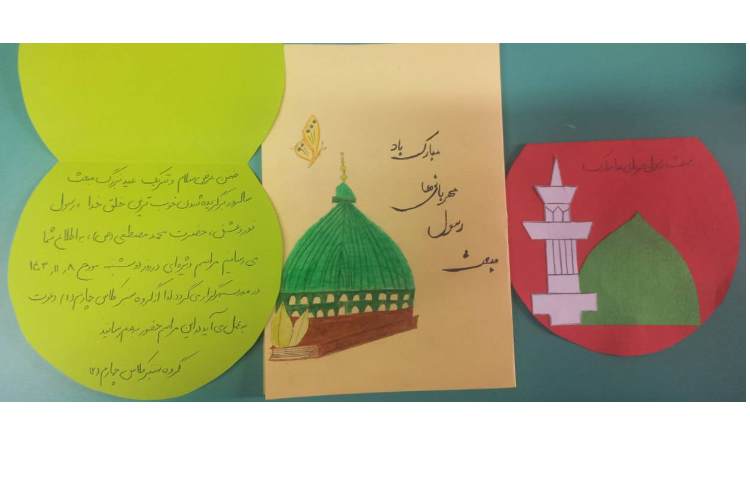 ضمن عرض سلام و تبریک عید بزرگ مبعث
سالروز برگزیده شدن خوب ترین خلق خدا، رسول
نور و روشنی، حضرت محمد مصطفی (ص)، به اطلاع شما
می رسانیم مراسم ویژه‌ای در روز دوشنبه مورخ
در مدرسه برگزار می گردد لذا از گروه سبز کلاس چهارم دعوت
به عمل می آید در این مراسم حضور بهم رسانید
گروه سبز کلاس چهارم
مبارک باد
مهربانی‌ها
رسول
مبعث
مبعث رسول مهربانی ها مبارک